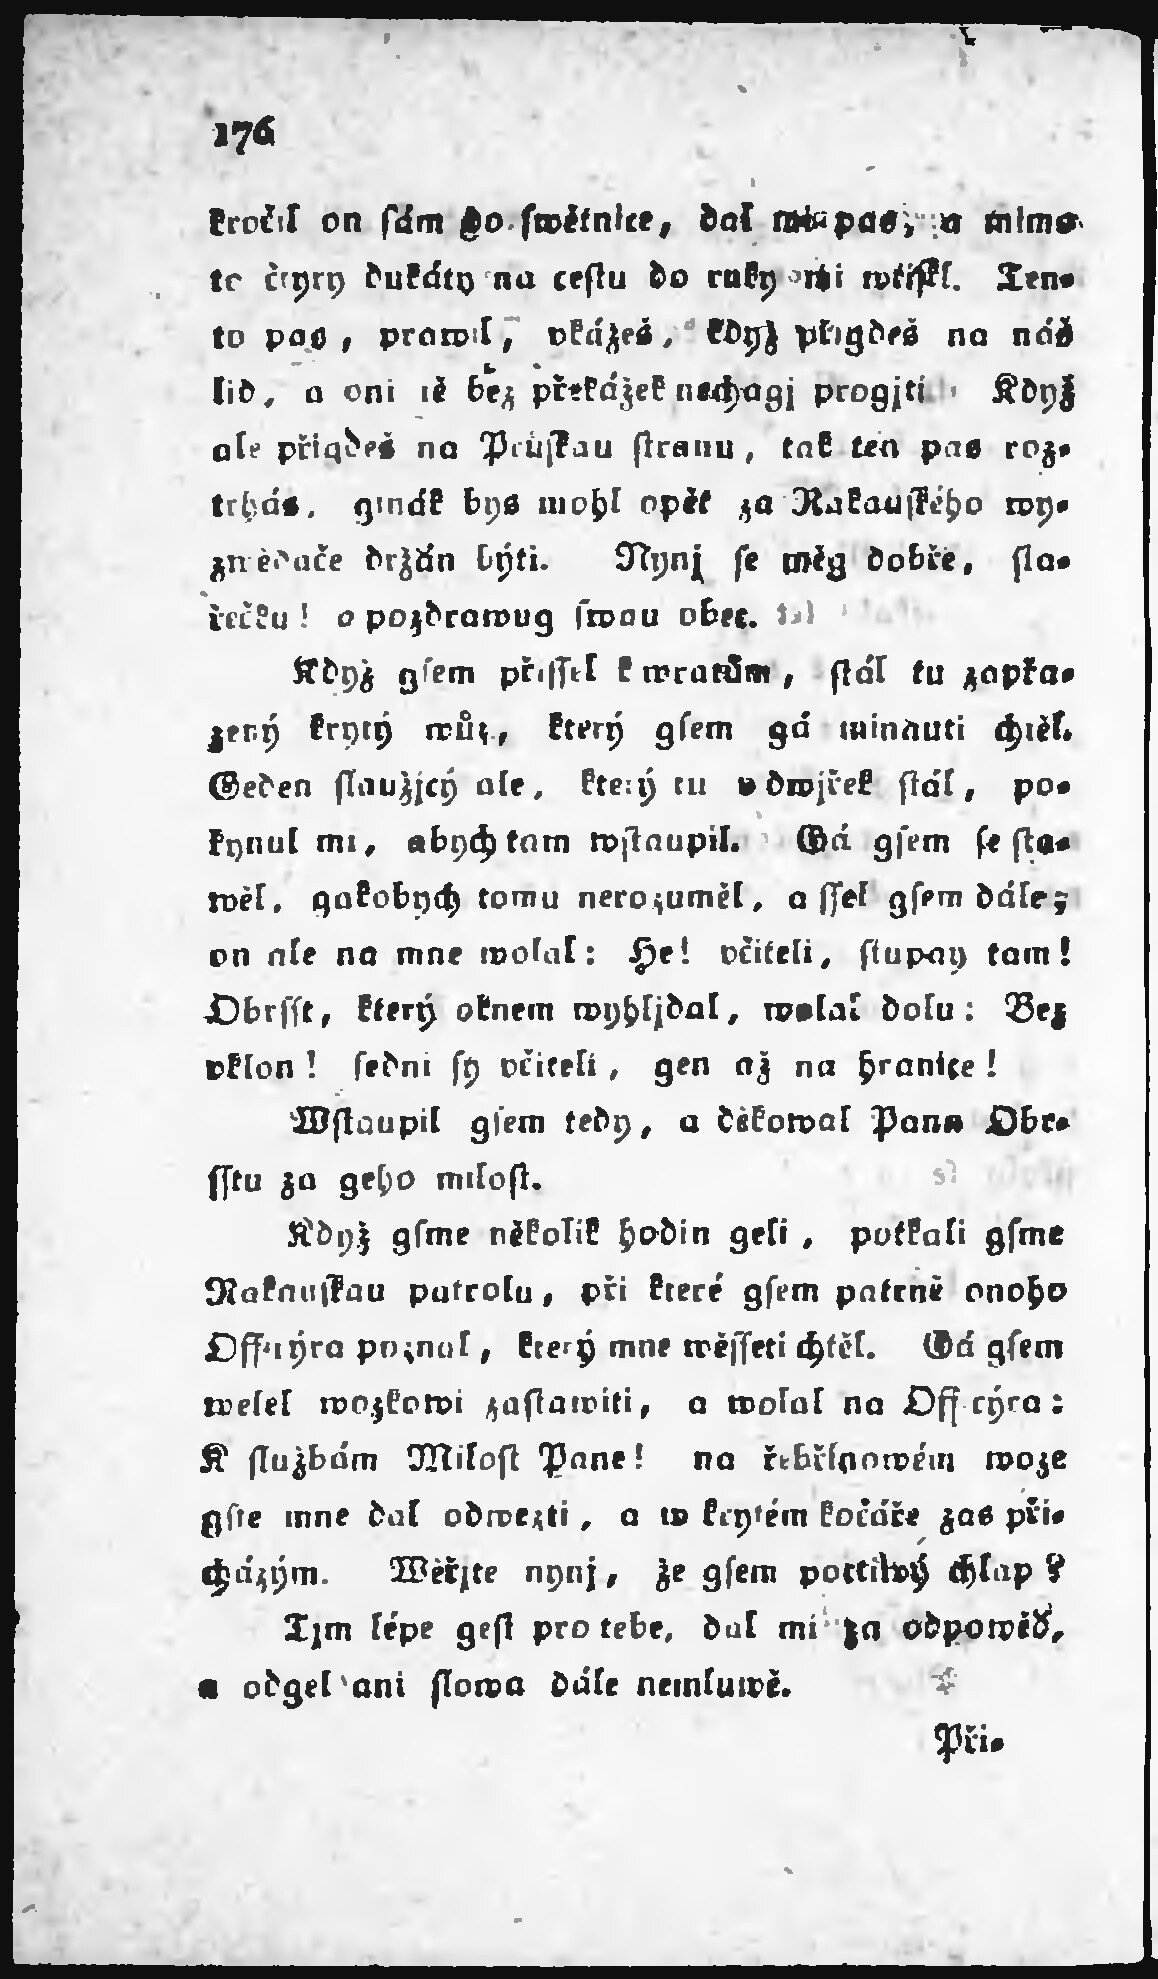 176
kročil on ſám do ſwětnice, dal mi pas, a mimo
to čtyry dukáty na ceſtu do ruky mi wtiſkl. Ten-
to pas, prawil, vkážeš, když přigdeš na náš
lid, a oni tě bez překážek nechagj progjti. Když
ale přigdeš na Průſkau ſtranu, tak ten pas roz-
trhás, ginák bys mohl opět za Rakauſkého wy-
zwědače držán býti. Nynj ſe měg dobře, ſta-
řečku! a pozdrawug ſwau obec.
Když gſem přiſſel k wratům, ſtál tu zapřa-
žený krytý wůz, který gſem gá minauti chtěl.
Geden ſlaužjcý ale, který tu v dwjřek ſtál, po-
kynul mi, abych tam wſtaupil. Gá gſem ſe ſta-
wěl, gakobych tomu nerozuměl, a ſſel gſem dále;
on ale na mne wolal: He! včiteli, ſtupay tam!
Obrſſt, který oknem wyhljdal, wolal dolu: Bez
vklon! ſedni ſy včiteli, gen až na hranice!
Wſtaupil gſem tedy, a děkowal Panu Obr-
ſſtu za geho miloſt.
Když gſme několik hodin geli, potkali gſme
Rakauſkau patrolu, při které gſem patrně onoho
Offycýra poznal, který mne wěſſeti chtěl. Gá gſem
welel wozkowi zaſtawiti, a wolal na Offycýra:
K ſlužbám Miloſt Pane! na řebřinowém woze
gſte mne dal odwezti, a w krytém kočáře zas při-
cházým. Wěřjte nynj, že gſem poctiwý chlap?
Tjm lépe geſt pro tebe, dal mi za odpowěď,
a odgel ani ſlowa dále nemluwě.
Při-